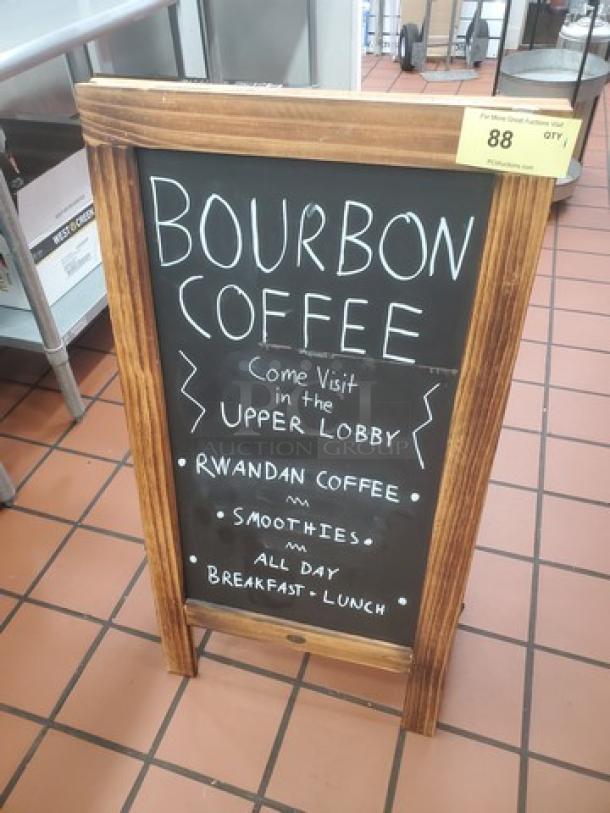 For More Great Auctions Visit
88 QTY 1
PCIAuctions.com
BOURBON
COFFEE
Come Visit
in the
UPPER LOBBY
PCI
AUCTION GROUP
• RWANDAN COFFEE •
• SMOOTHIES •
• ALL DAY
BREAKFAST • LUNCH •
WEST CREEK